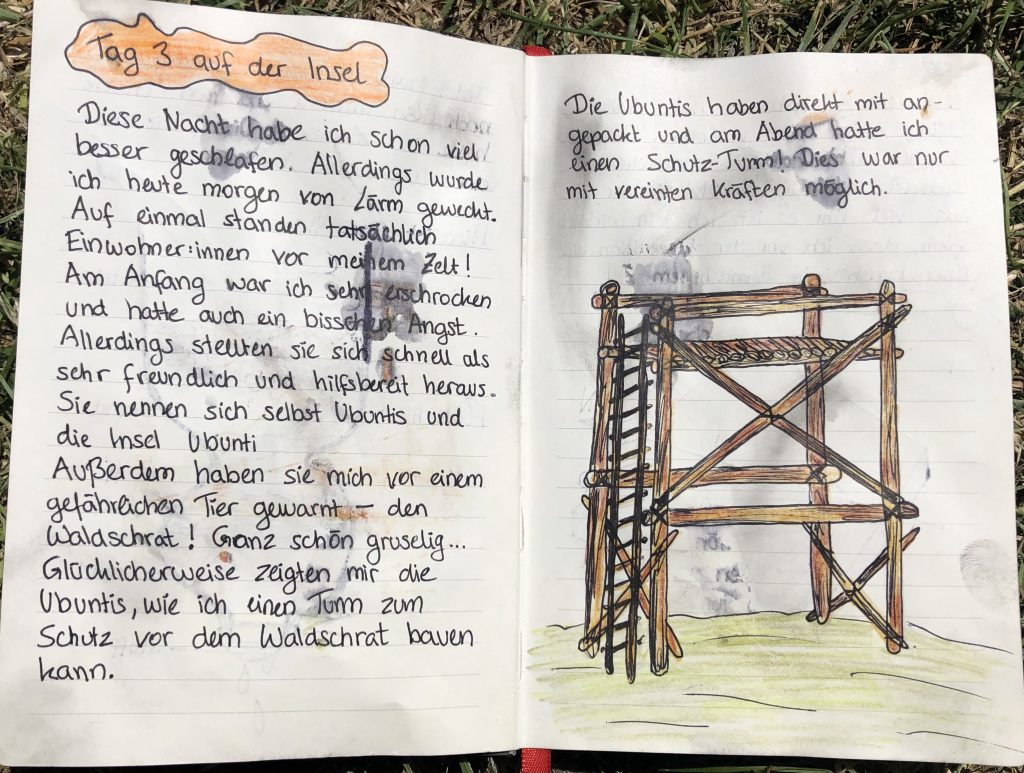 Tag 3 auf der Insel
Diese Nacht habe ich schon viel
besser geschlafen. Allerdings wurde
ich heute morgen von Lärm geweckt.
Auf einmal standen tatsächlich
Einwohner:innen vor meinem Zelt!
Am Anfang war ich sehr erschrocken
und hatte auch ein bisschen Angst.
Allerdings stellten sie sich schnell als
sehr freundlich und hilfsbereit heraus.
Sie nennen sich selbst Ubuntis und
die Insel Ubunti
Außerdem haben sie mich vor einem
gefährlichen Tier gewarnt – den
Waldschrat! Ganz schön gruselig...
Glücklicherweise zeigten mir die
Ubuntis, wie ich einen Turm zum
Schutz vor dem Waldschrat bauen
kann.
Die Ubuntis haben direkt mit an-
gepackt und am Abend hatte ich
einen Schutz-Turm! Dies war nur
mit vereinten Kräften möglich.